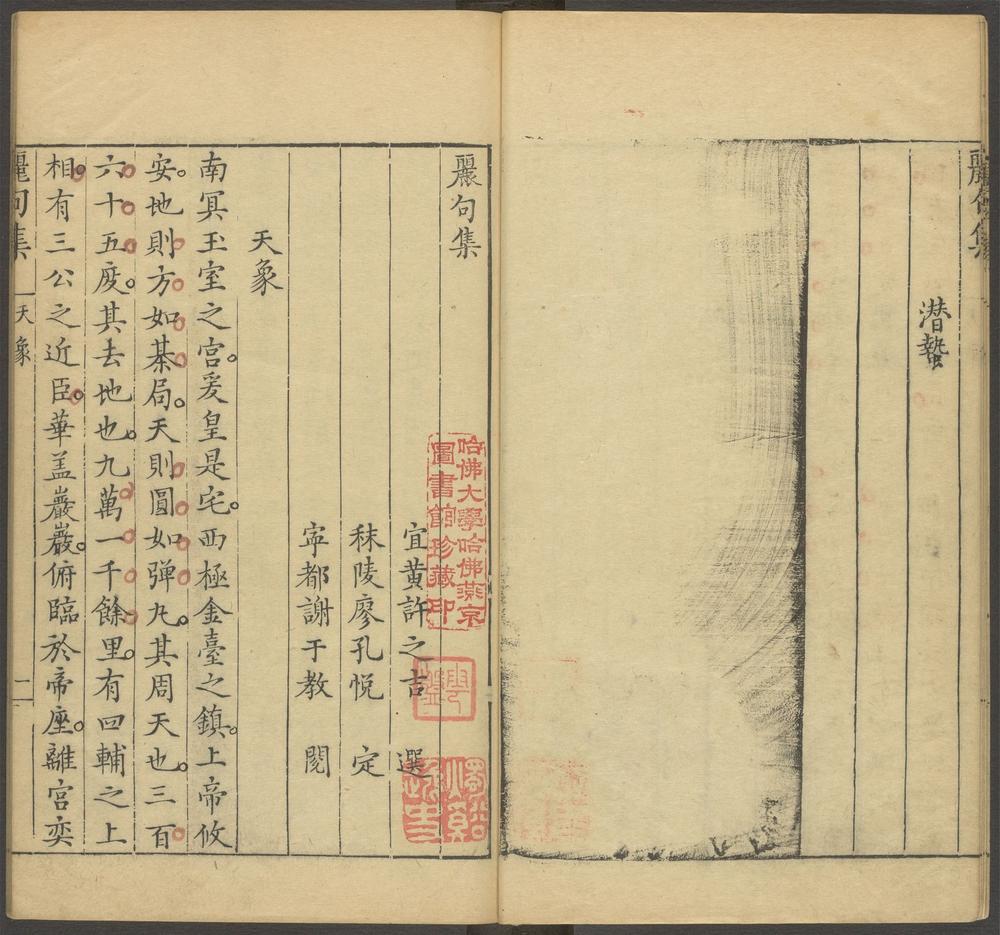 麗句集
潜蟄
麗句集
宜黄許之吉　選
秣陵廖孔悦　定
寧都謝于教　閲
天象
南冥玉室之宫。爰皇是宅。西極金臺之鎮。上帝攸
安。地則方如棊局。天則圓如弹丸。其周天也。三百
六十五度。其去地也。九萬一千餘里。有四輔之上
相。有三公之近臣。華盖巖巖。俯臨於帝座。離宫奕
麗句集
天象
二
哈佛大學哈佛燕京
圖書館珍藏印